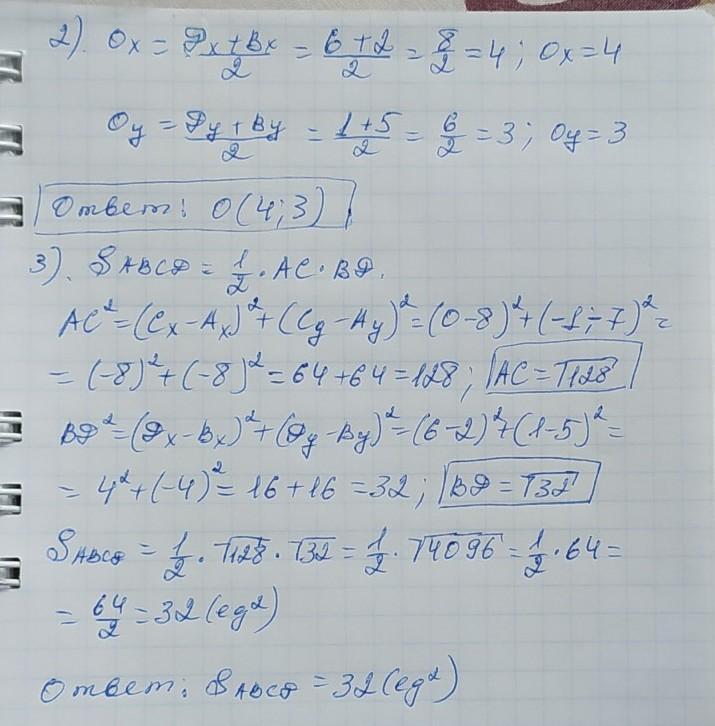 2). Ox = (Дx+Bx)/2 = (6+2)/2 = 8/2 = 4; Ox = 4
Oy = (Дy+By)/2 = (1+5)/2 = 6/2 = 3; Oy = 3
Ответ: O(4;3)
3). SABCД = 1/2 · AC · BД.
AC² = (Cx-Ax)² + (Cy-Ay)² = (0-8)² + (-1-7)² =
= (-8)² + (-8)² = 64+64 = 128; AC = √128
BД² = (Дx-Bx)² + (Дy-By)² = (6-2)² + (1-5)² =
= 4² + (-4)² = 16 + 16 = 32; BД = √32
SABCД = 1/2 · √128 · √32 = 1/2 · √4096 = 1/2 · 64 =
= 64/2 = 32 (ед²)
Ответ: SABCД = 32 (ед²)